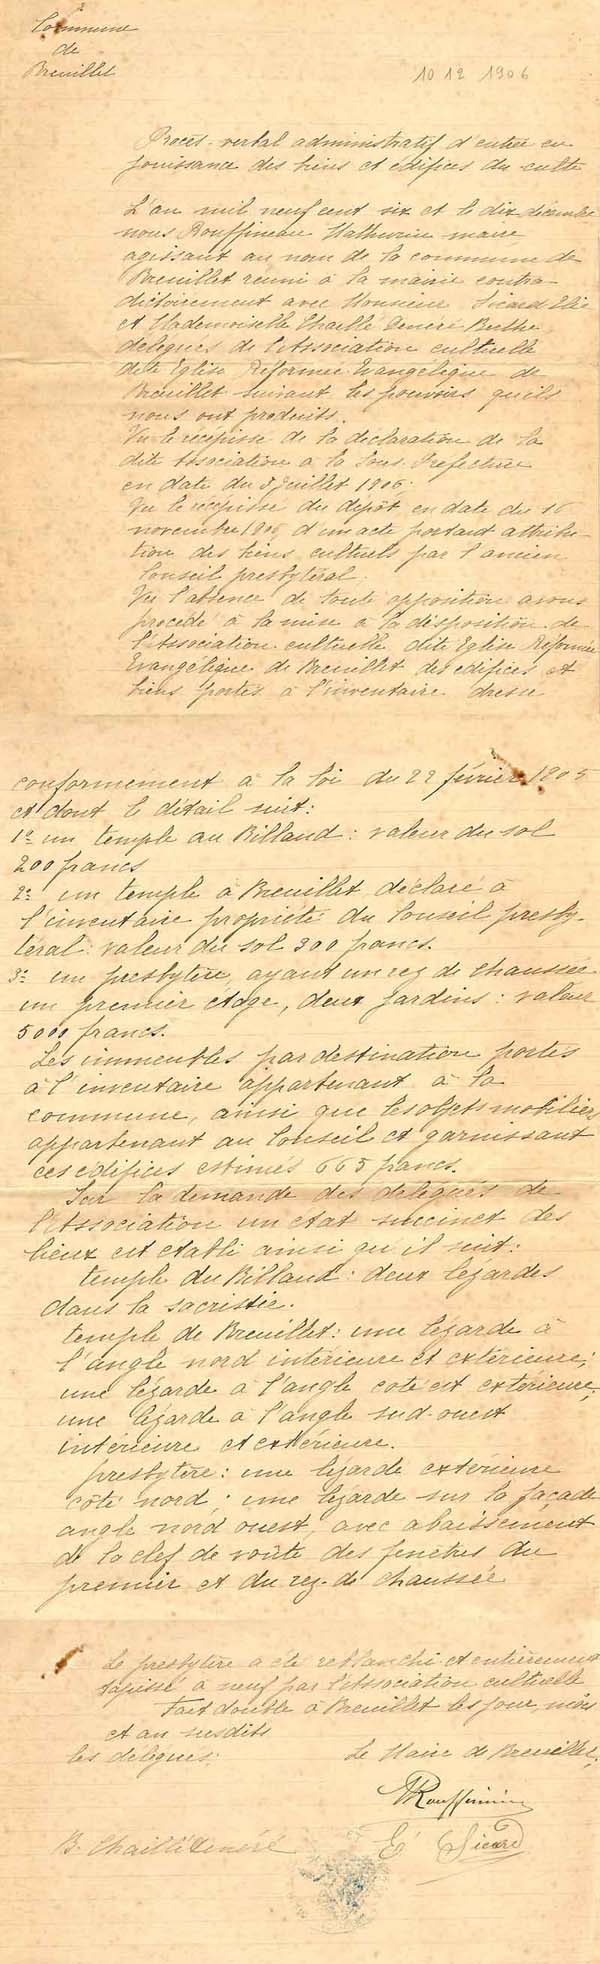 Commune
de
Breuillet
10 12 1906
Procès-verbal administratif d'entrée en
jouissance des biens et édifices du culte
L'an mil neuf cent six et le dix décembre
nous Rouffineau Mathurin maire
agissant au nom de la commune de
Breuillet réuni à la mairie contra-
dictoirement avec Monsieur Sicard Elie
et Mademoiselle Chaillé Deneré Berthe
délégués de l'Association cultuelle
dite Eglise Réformée Evangélique de
Breuillet suivant les pouvoirs qu'ils
nous ont produits.
Vu le récépissé de la déclaration de la
dite Association à la Sous-Préfecture
en date du Juillet 1906.
Vu le récépissé du dépôt en date du 16
novembre 1906 d'un acte portant attribu-
tion des biens cultuels par l'ancien
Conseil presbytéral.
Vu l'absence de toute opposition avons
procédé à la mise à la disposition de
l'Association cultuelle dite Eglise Réformée
Evangélique de Breuillet des édifices et
biens portés à l'inventaire dressé
conformément à la loi du 22 février 1905
et dont le détail suit:
1º un temple au Billaud: valeur du sol
200 francs
2º un temple à Breuillet déclaré à
l'inventaire propriété du Conseil presby-
téral: valeur du sol 300 francs.
3º un presbytère, ayant un rez de chaussée
un premier étage, deux jardins: valeur
5000 francs.
Les immeubles par destination portés
à l'inventaire appartenant à la
commune, ainsi que les objets mobiliers
appartenant au Conseil et garnissant
ces édifices estimés 665 francs.
Sur la demande des délégués de
l'Association un état succinct des
lieux est établi ainsi qu'il suit:
temple du Billaud: deux lézardes
dans la sacristie.
temple de Breuillet: une lézarde à
l'angle nord intérieure et extérieure;
une lézarde à l'angle coté est extérieure;
une lézarde à l'angle sud-ouest
intérieure et extérieure.
presbytère: une lézarde extérieure
côté nord; une lézarde sur la façade
angle nord ouest, avec abaissement
de la clef de voûte des fenêtres du
premier et du rez-de chaussée
Le presbytère a été reblanchi et entièrement
tapissé à neuf par l'Association cultuelle
Fait double à Breuillet les jour, mois
et an susdits
les délégués: Le Maire de Breuillet,
Rouffineau
B. Chaillé Deneré E. Sicard